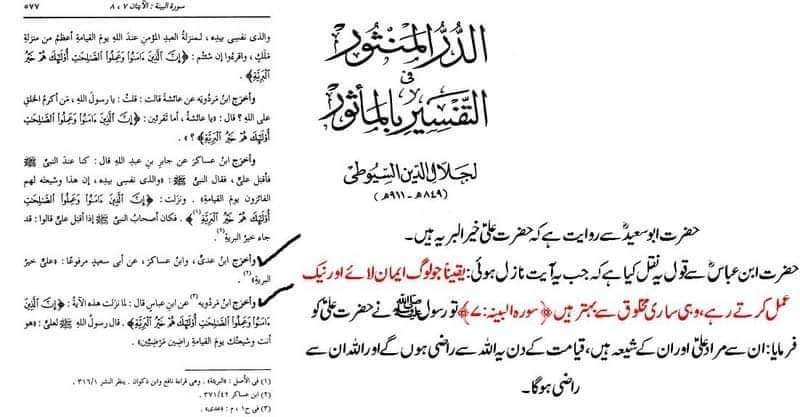 سورة البينة : الآيتان ٧ ، ٨
٥٧٧
والذى نفسى بيده ، لمنزلةُ العبدِ المؤمنِ عندَ اللهِ يومَ القيامةِ أعظمُ من منزلةِ
مَلَكٍ ، واقرءُوا إن شئتُم : ﴿إِنَّ ٱلَّذِينَ ءَامَنُوا۟ وَعَمِلُوا۟ ٱلصَّـٰلِحَـٰتِ أُو۟لَـٰٓئِكَ هُمْ خَيْرُ
ٱلْبَرِيَّةِ﴾ .
وأخرَج ابنُ مَردُويَه عن عائشةَ قالت : قلتُ : يا رسولَ اللهِ ، مَن أكرمُ الخلقِ
على اللهِ ؟ قال : «يا عائشةُ ، أما تقرئين : ﴿إِنَّ ٱلَّذِينَ ءَامَنُوا۟ وَعَمِلُوا۟ ٱلصَّـٰلِحَـٰتِ
أُو۟لَـٰٓئِكَ هُمْ خَيْرُ ٱلْبَرِيَّةِ﴾ ؟» .
وأخرَج ابنُ عساكرَ عن جابرِ بنِ عبدِ اللهِ قال : كنا عندَ النبىِّ ﷺ
فأقبَل علىٌّ ، فقال النبىُّ ﷺ : «والذى نفسى بيدِه ، إن هذا وشيعتَه لهم
الفائزون يومَ القيامةِ» . ونزلت : ﴿إِنَّ ٱلَّذِينَ ءَامَنُوا۟ وَعَمِلُوا۟ ٱلصَّـٰلِحَـٰتِ
أُو۟لَـٰٓئِكَ هُمْ خَيْرُ ٱلْبَرِيَّةِ﴾(١) . فكان أصحابُ النبىِّ ﷺ إذا أقبَل علىٌّ قالوا : قد
جاء خيرُ البريةِ(٢) .
وأخرَج ابنُ عدىٍّ ، وابنُ عساكرَ ، عن أبى سعيدٍ مرفوعًا : «علىٌّ خيرُ
البريةِ» .
وأخرَج ابنُ مَردُويَه(٣) عن ابنِ عباسٍ قال : لما نزلت هذه الآيةُ : ﴿إِنَّ ٱلَّذِينَ
ءَامَنُوا۟ وَعَمِلُوا۟ ٱلصَّـٰلِحَـٰتِ أُو۟لَـٰٓئِكَ هُمْ خَيْرُ ٱلْبَرِيَّةِ﴾ . قال رسولُ اللهِ ﷺ لعلىٍّ : «هو
أنت وشيعتُك يومَ القيامةِ راضين مَرْضِيِّين» .
(١) فى الأصل : «البريئة» . وهى قراءة نافع وابن ذكوان . ينظر النشر ٣١٦/١ .
(٢) ابن عساكر ٣٧١/٤٢ .
(٣) فى ح١ ، م : «عدى» .
الدُّرُّ المَنْثُور
فى
التَّفْسِيرِ بالمأثُورِ
لجلال الدين السيوطىّ
(٨٤٩هـ - ٩١١هـ)
حضرت ابو سعیدؓ سے روایت ہے کہ حضرت علیؑ خیر البریہ ہیں۔
حضرت ابن عباسؓ سے قول یہ نقل کیا ہے کہ جب یہ آیت نازل ہوئی: یقیناً جو لوگ ایمان لائے اور نیک
عمل کرتے رہے، وہی ساری مخلوق سے بہتر ہیں ﴿سورہ البینہ:۷﴾ تو رسول ﷺ نے حضرت علیؑ کو
فرمایا: ان سے مراد علیؑ اور ان کے شیعہ ہیں، قیامت کے دن یہ اللہ سے راضی ہوں گے اور اللہ ان سے
راضی ہوگا۔